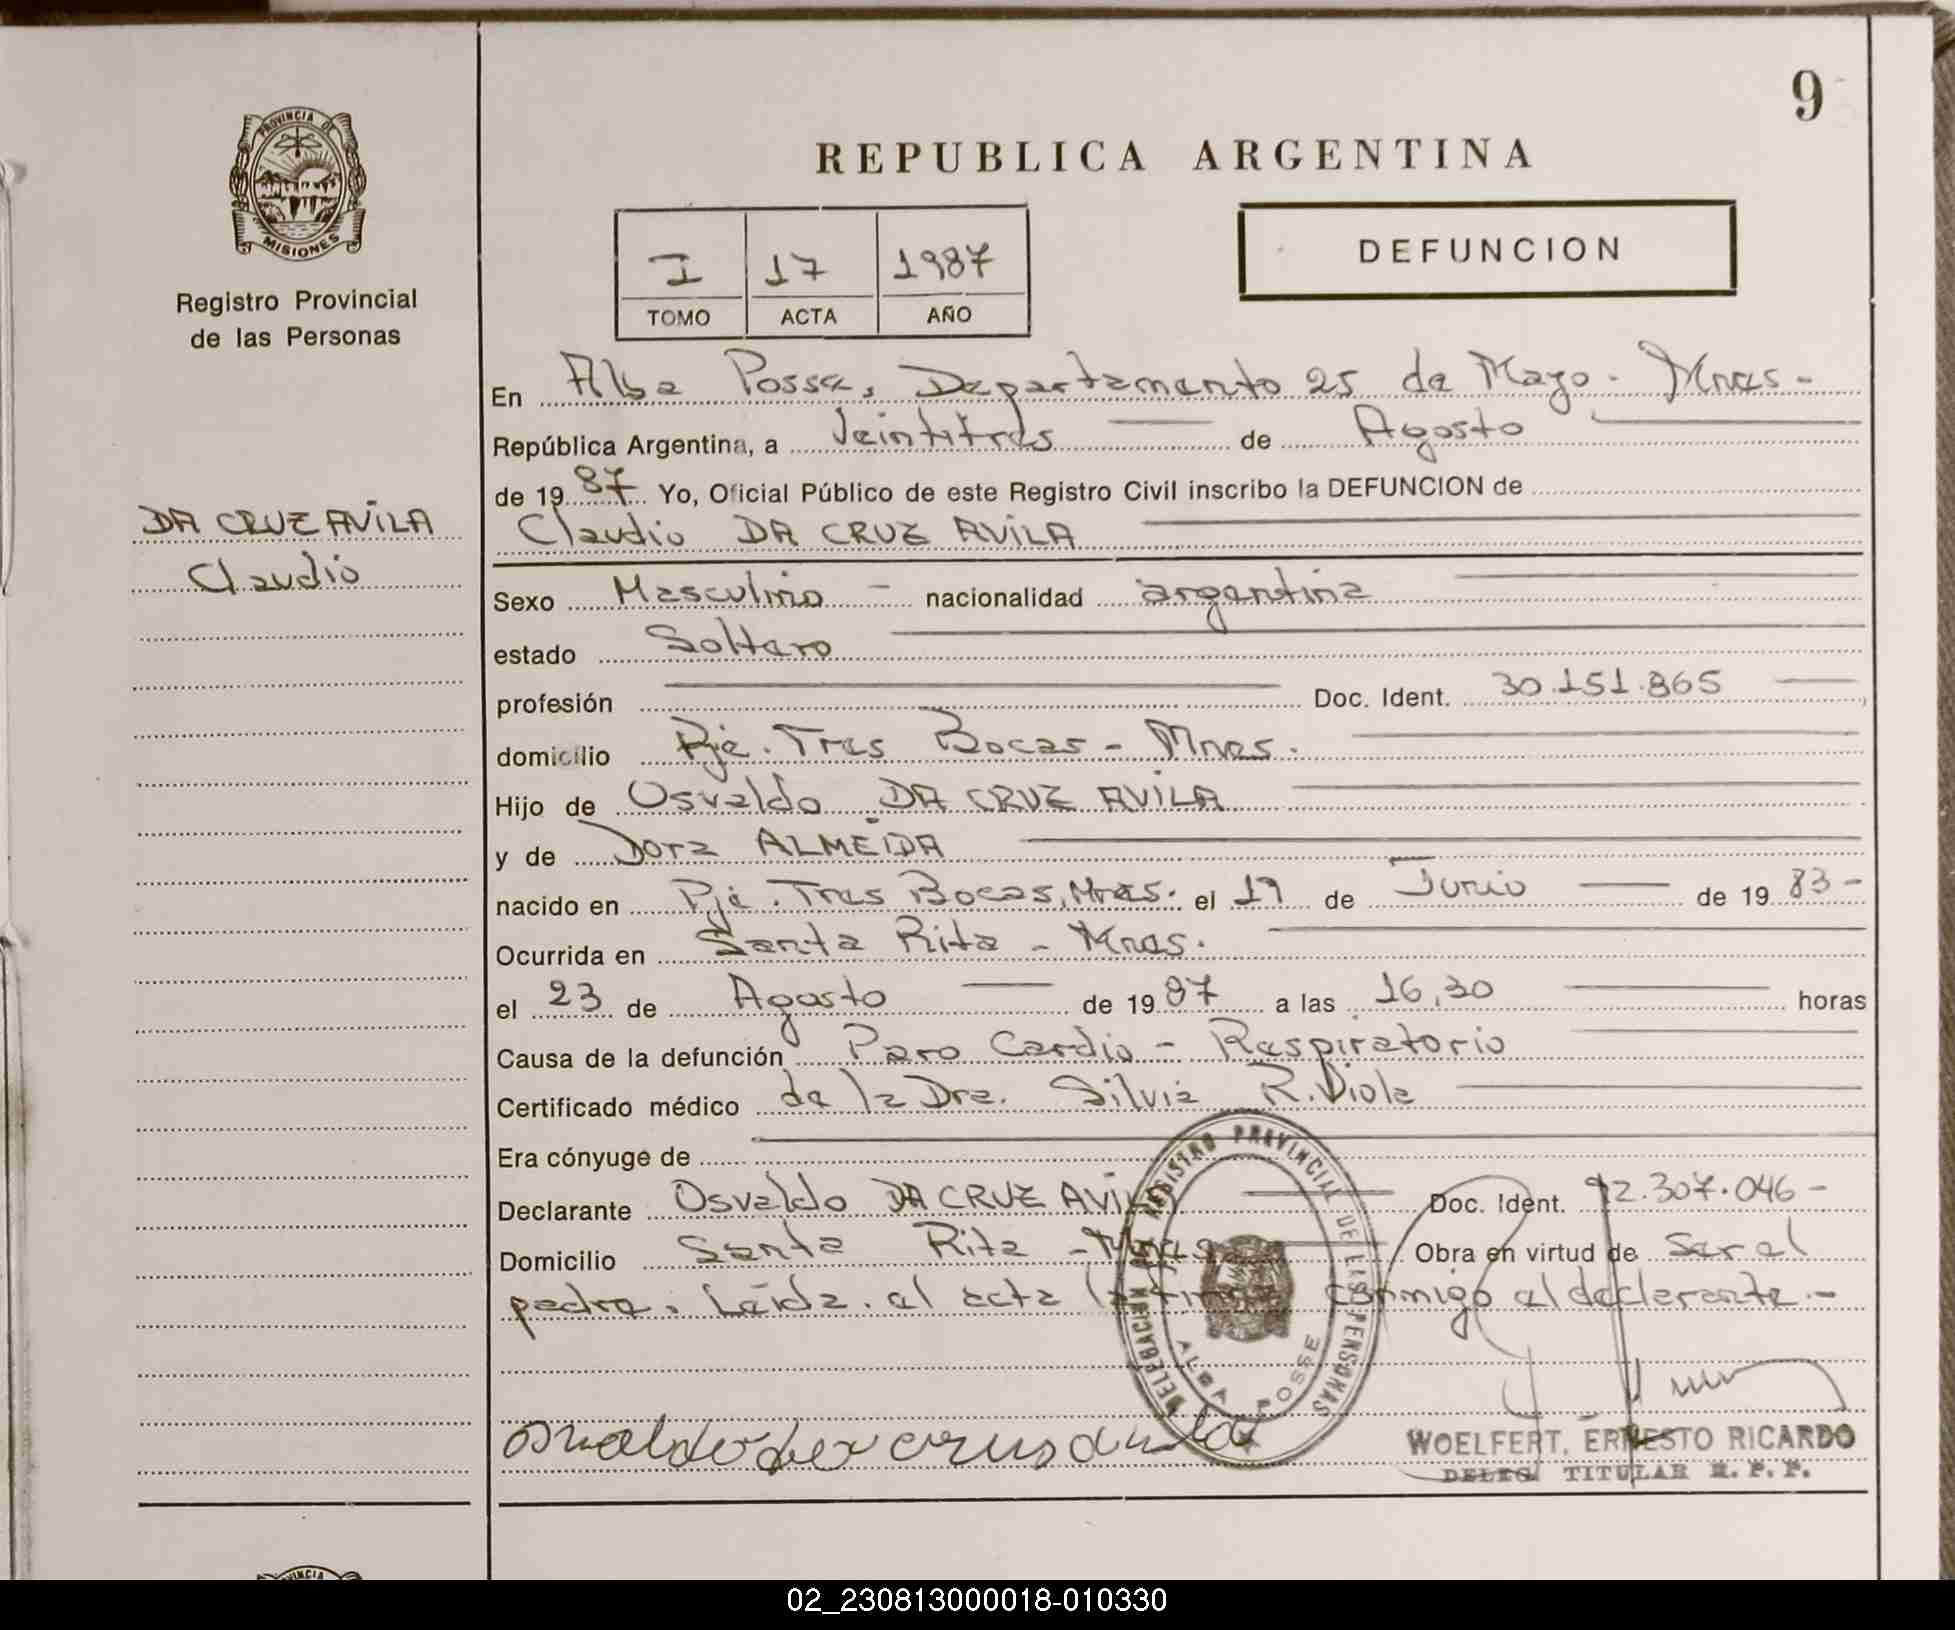 9
PROVINCIA DE
MISIONES
Registro Provincial
de las Personas
REPUBLICA ARGENTINA
DEFUNCION
I 17 1987
TOMO ACTA AÑO
En Alba Posse, Departamento 25 de Mayo - Mnes -
República Argentina, a Veintitrés de Agosto
de 1987 Yo, Oficial Público de este Registro Civil inscribo la DEFUNCION de
DA CRUZ AVILA
Claudio
Claudio DA CRUZ AVILA
Sexo Masculino - nacionalidad argentina
estado Soltero
profesión Doc. Ident. 30.151.865
domicilio Pje. Tres Bocas - Mnes.
Hijo de Osvaldo DA CRUZ AVILA
y de Dora ALMEIDA
nacido en Pje. Tres Bocas, Mnes. el 17 de Junio de 1983 -
Ocurrida en Santa Rita - Mnes.
el 23 de Agosto de 1987 a las 16,30 horas
Causa de la defunción Paro Cardio - Respiratorio
Certificado médico de la Dra. Silvia R. Viola
Era cónyuge de
Declarante Osvaldo DA CRUZ AVILA Doc. Ident. 92.307.046 -
Domicilio Santa Rita - Mnes Obra en virtud de Ser el
padre. Leída el acta la firma conmigo el declarante. -
DELEGACION DE REGISTRO PROVINCIAL DE LAS PERSONAS
ALBA POSSE
WOELFERT, ERNESTO RICARDO
DELEG. TITULAR R. P. P.
02_230813000018-010330